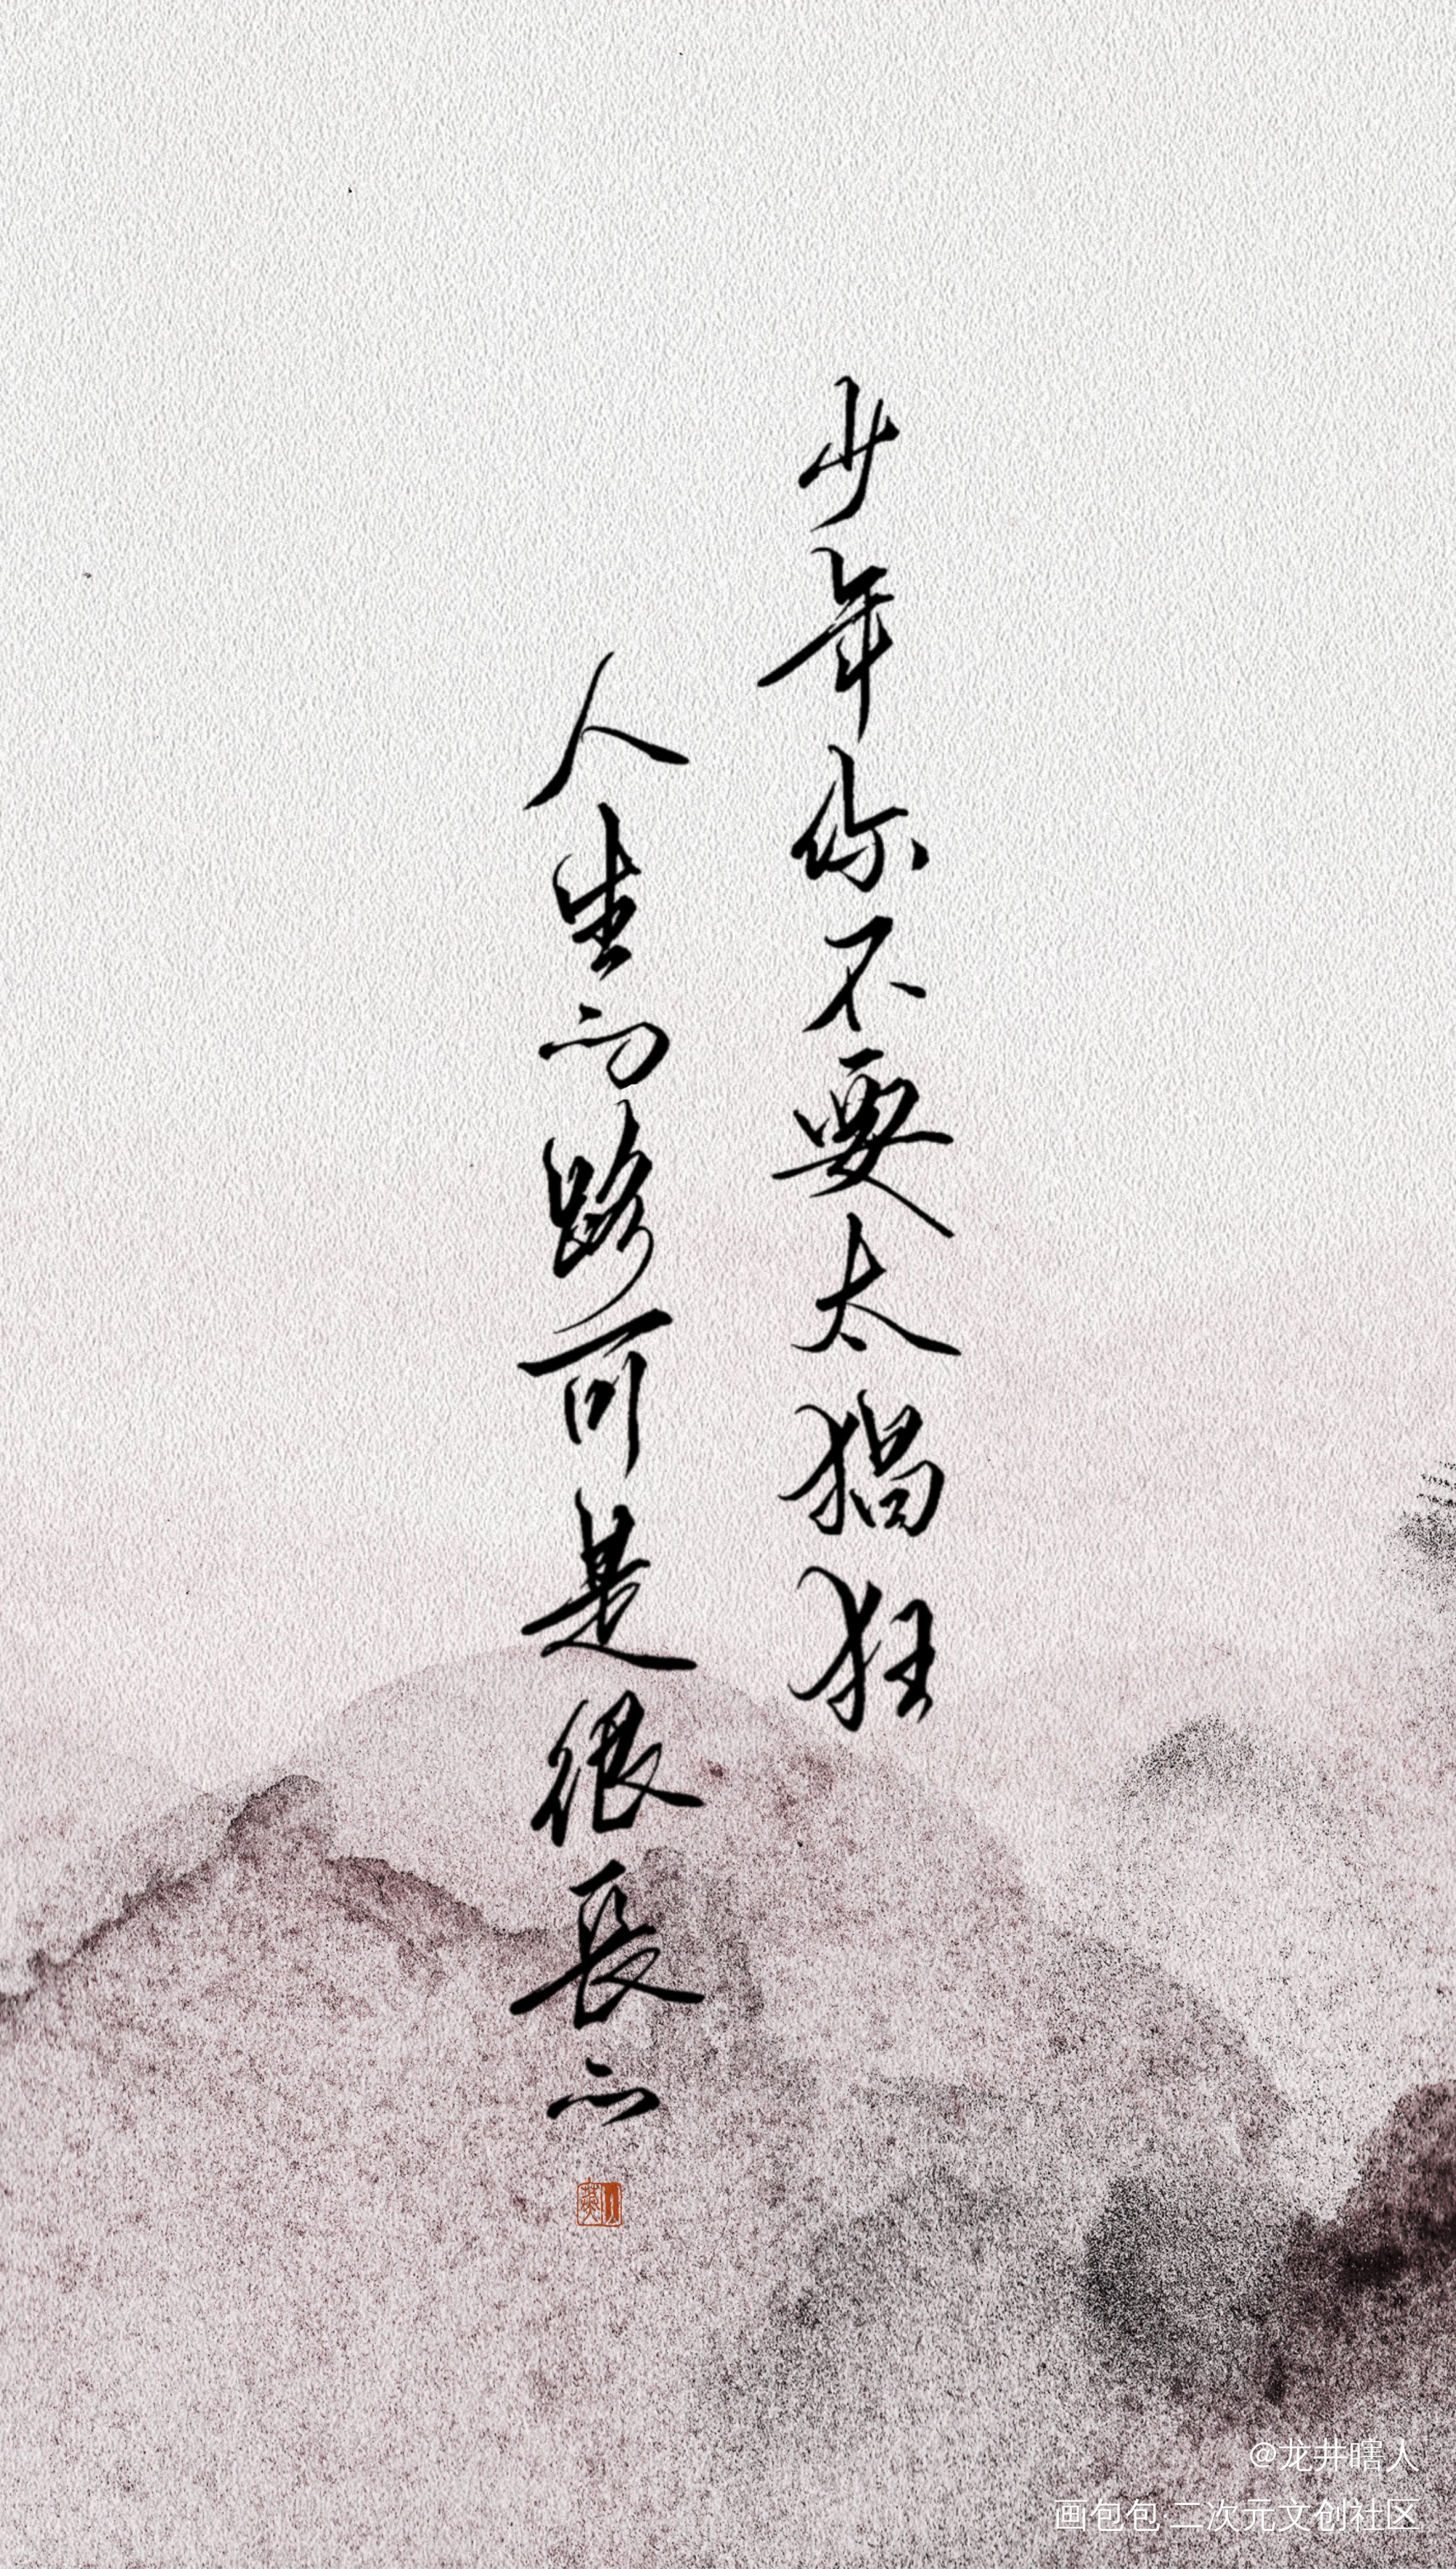 少年你不要太猖狂
人生的路可是很長的
@龙井瞎人
画包包·二次元文创社区